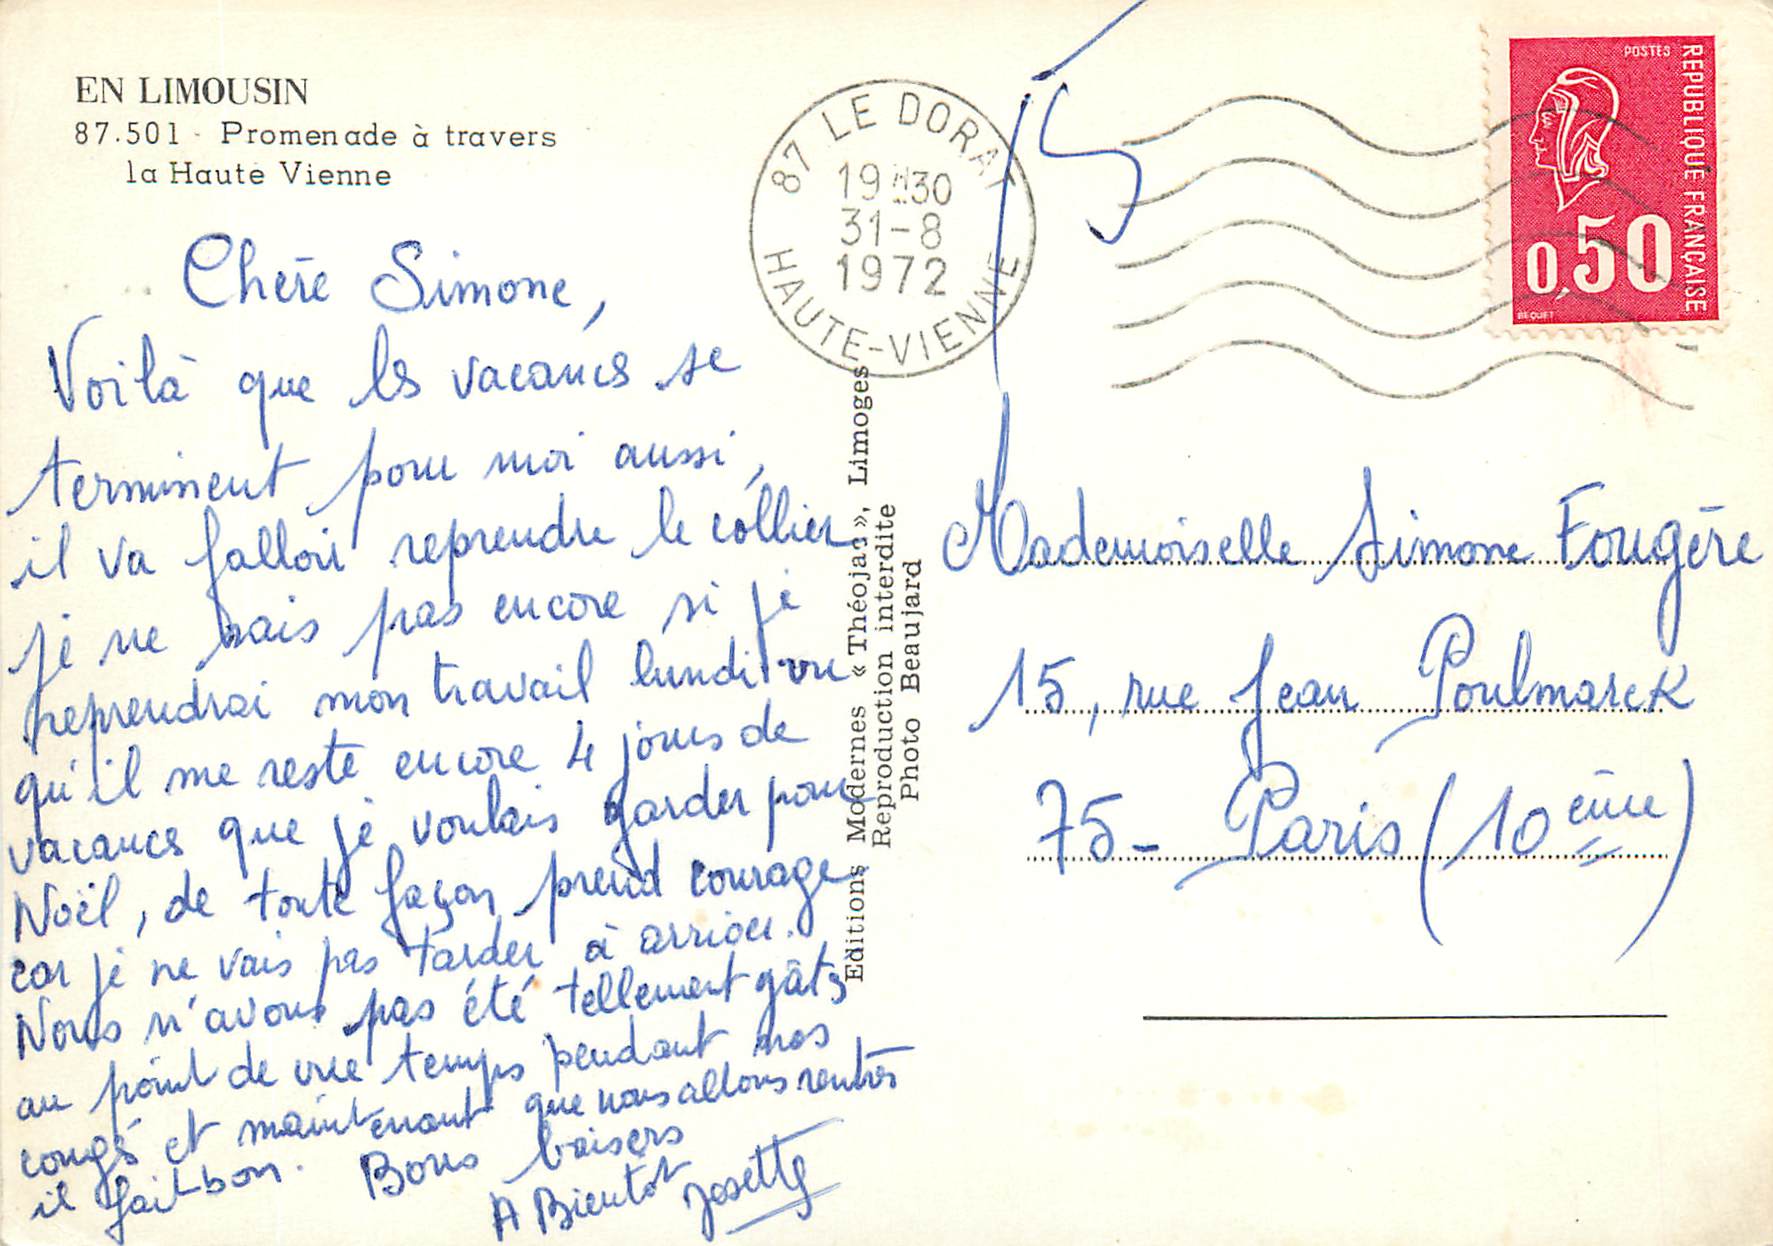 EN LIMOUSIN
87.501 - Promenade à travers
la Haute Vienne
Chère Simone,
Voilà que les vacances se
terminent pour moi aussi,
il va falloir reprendre le collier
je ne sais pas encore si je
reprendrai mon travail lundi vu
qu'il me reste encore 4 jours de
vacances que je voulais garder pour
Noël, de toute façon prend courage
car je ne vais pas tarder à arriver.
Nous n'avons pas été tellement gâtés
au point de vue temps pendant nos
congés et maintenant que nous allons rentrés
il fait bon. Bons baisers
A Bientôt Josette
Editions Modernes « Théojac », Limoges
Reproduction interdite
Photo Beaujard
87 LE DORAT
19H30
31-8
1972
HAUTE-VIENNE
15
POSTES
REPUBLIQUE FRANÇAISE
0,50
BEQUET
Mademoiselle Simone Fougère
15, rue Jean Poulmarck
75 - Paris (10ème)